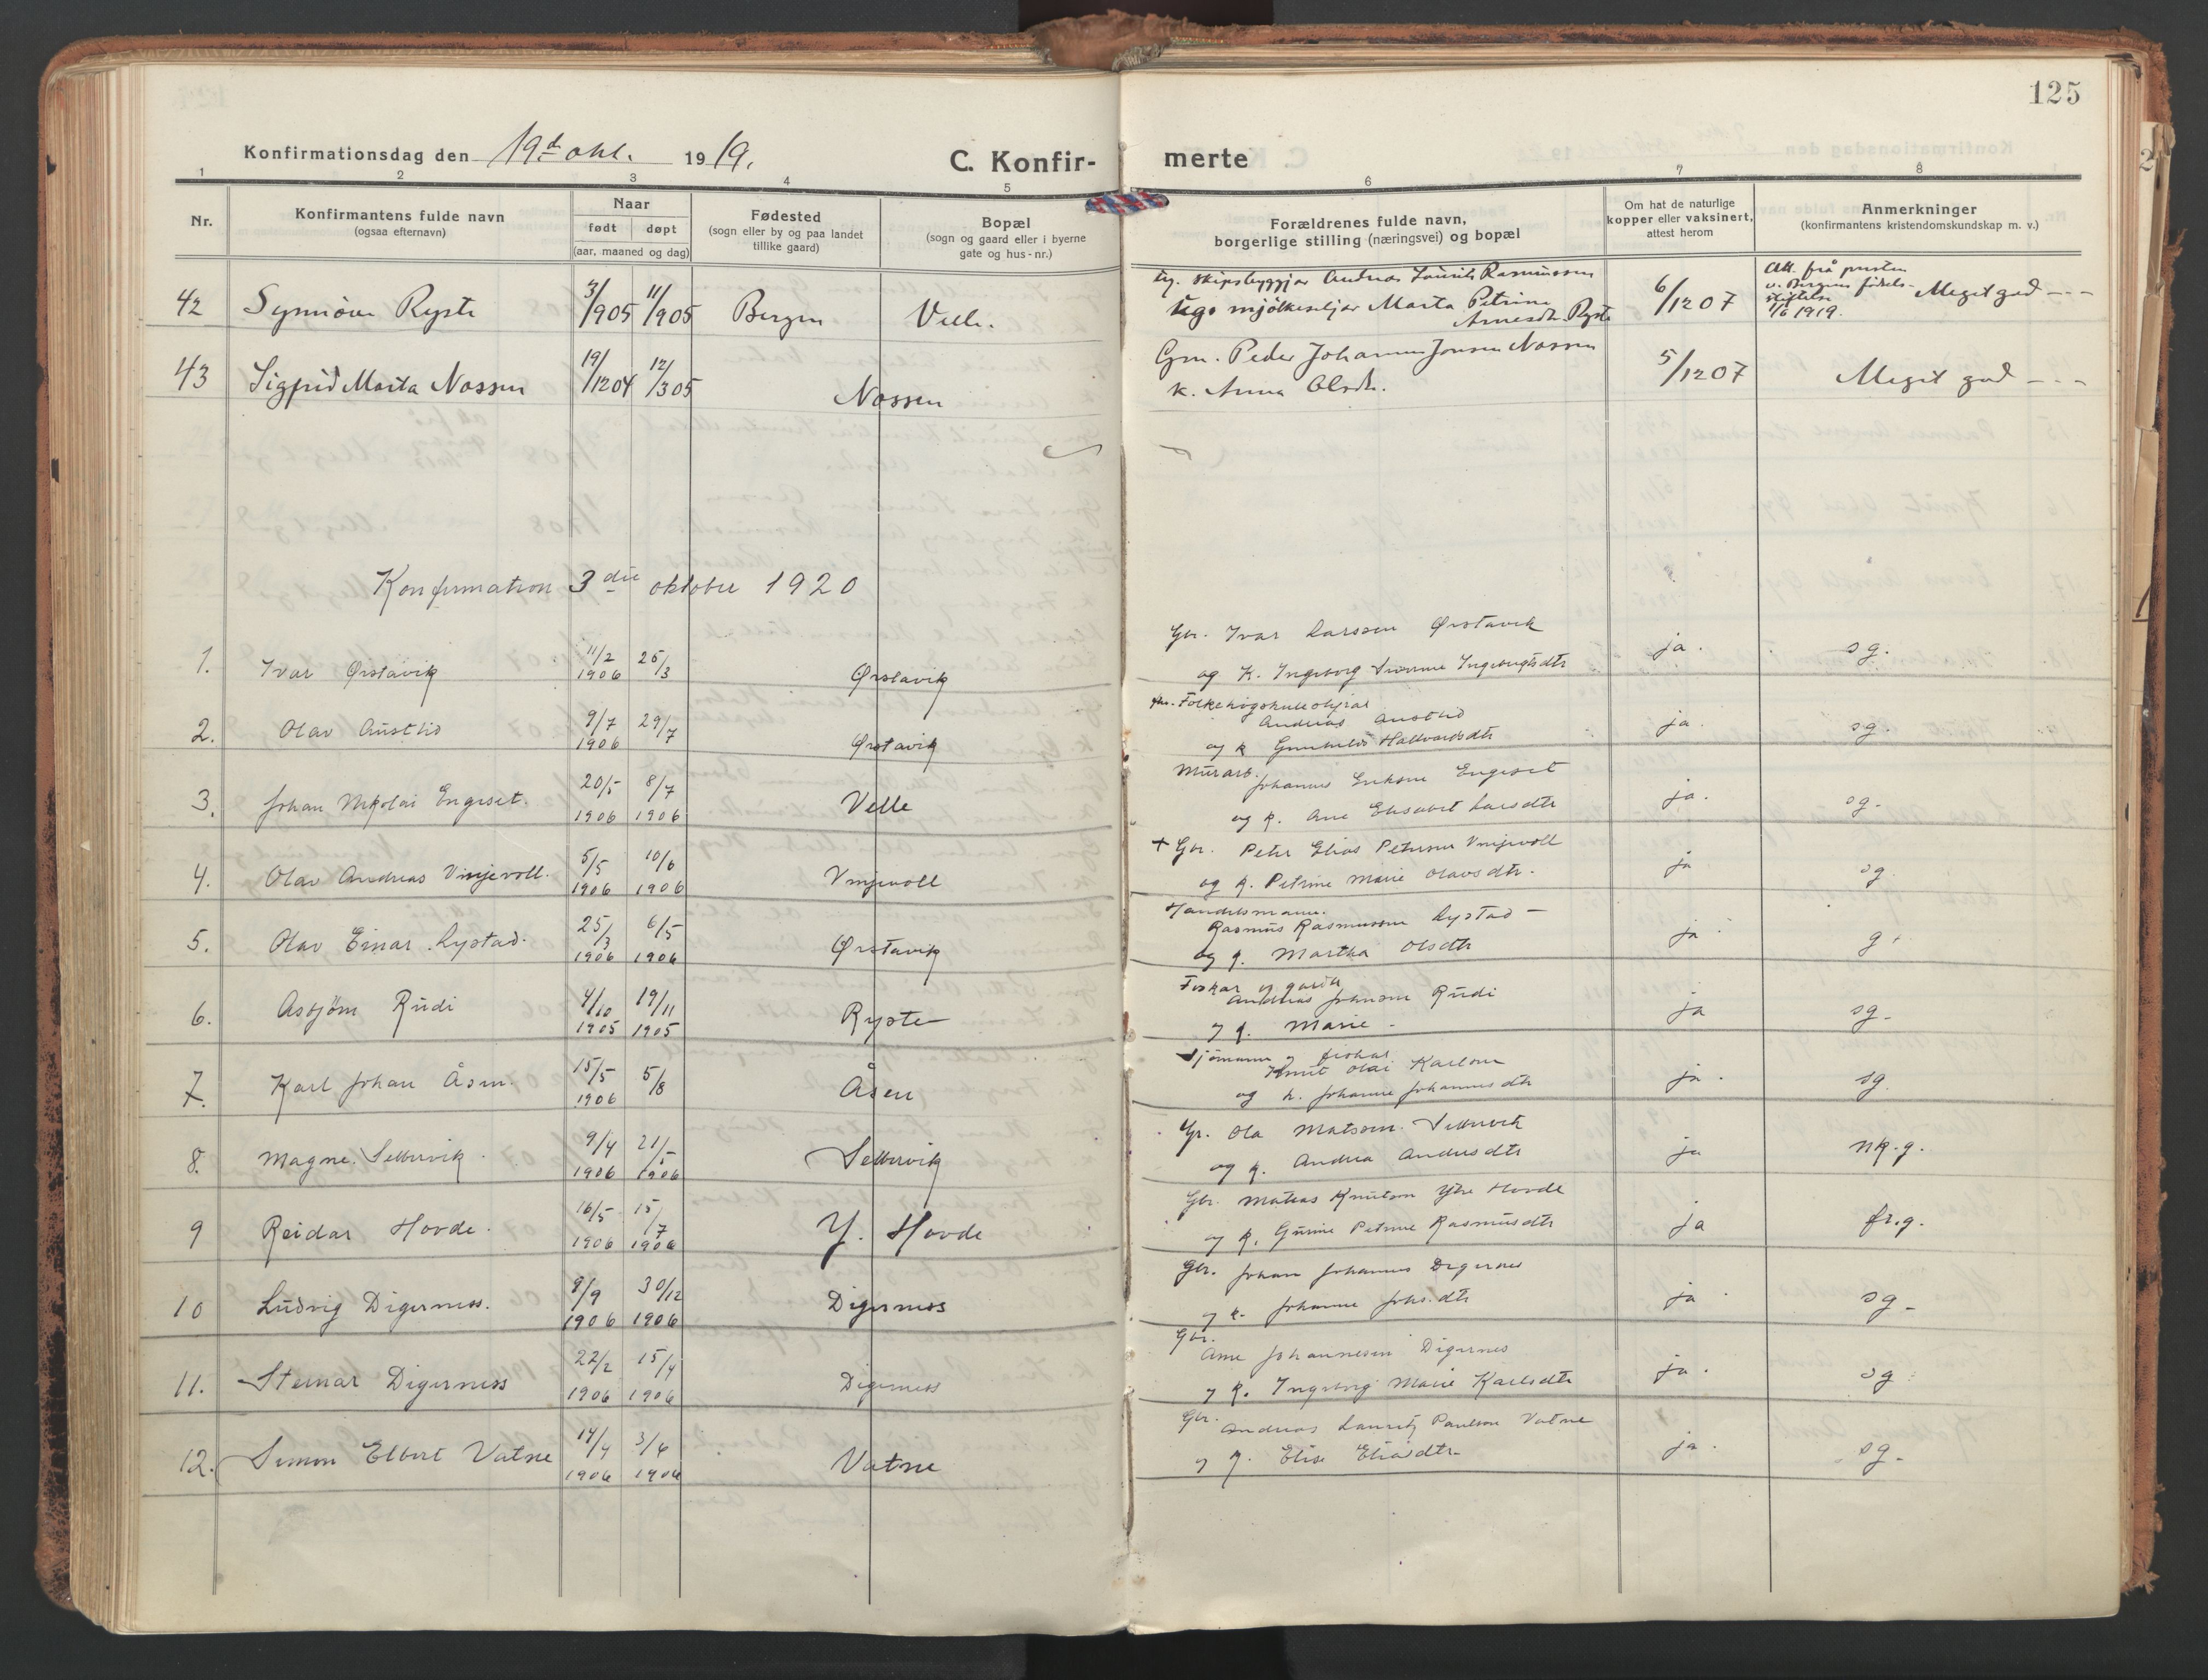 125
Konfirmationsdag den 19d okt. 1919.
C. Konfirmerte
1 2 3 4 5 6 7 8
Nr.
Konfirmantens fulde navn
(ogsaa efternavn)
Naar
født døpt
(aar, maaned og dag)
Fødested
(sogn eller by og paa landet
tillike gaard)
Bopæl
(sogn og gaard eller i byerne
gate og hus-nr.)
Forældrenes fulde navn,
borgerlige stilling (næringsvei) og bopæl
Om hat de naturlige
kopper eller vaksinert,
attest herom
Anmerkninger
(konfirmantens kristendomskundskap m. v.)
42 Synnöve Ryste 3/1905 11/1905 Bergen Velle.
Ug. skipsbyggjar Andreas Laurits Rasmussen
Ugo mjölkeseljar Marta Petrine
Arnesdtr. Ryste
6/12 07
Att. frå presten
v. Bergens födsels-
stiftelse
1/6 1919.
Meget god - - -
43 Sigfrid Marta Nossen 19/12 04 12/3 05 Nossen
Gm. Peder Johannes Jonsen Nossen
K. Anna Olsdtr.
5/12 07 Meget god - - -
Konfirmation 3die oktober 1920
1. Ivar Ørstavik 11/2 1906 25/3 Ørstavik
Gbr. Ivar Larssen Ørstavik
og K. Ingeborg Ingebrigtsdtr
ja. sg.
2. Olav Austlid 9/7 1906 29/7 Ørstavik
Folkehögskulestyrar
Andreas Austlid
og k Gunhild Hallvardsdtr
ja. sg.
3. Johan Nikolai Engeset. 20/5 1906 8/7 1906 Velle
Murarb.
Johannes Eriksen Engeset
og k. Ane Elisabet Larsdtr
ja. sg.
4. Olav Andreas Vinjevoll. 5/5 1906 10/6 1906 Vinjevoll
+ Gbr. Peter Elias Petersen Vinjevoll
og k. Petrine Marie Olavsdtr.
ja sg.
5. Olav Einar Lystad. 25/3 1906 6/5 1906 Ørstavik
Handelsmann.
Rasmus Rasmussen Lystad -
og k. Martha Olsdtr
ja g.
6. Asbjörn Rudi 4/10 1905 19/11 1905 Ryste
Fiskar og gardbr
Andreas Johnsen Rudi
og k. Marie.
ja sg.
7. Karl Johan Åsen. 15/5 1906 5/8 Åsen
Sjömann og fiskar
Knut Olai Karlsen
og k. Johanne Johannesdtr
ja. sg.
8. Magne Sellevik. 9/4 1906 21/5 1906 Sellevik
Gbr. Ola Matsson. Sellevik
og k. Andrea Andersdtr
ja nk.g.
9 Reidar Hovde. 16/5 1906 15/7 1906 Y. Hovde
Gbr. Mateas Knutson Ytre Hovde
og k. Gurine Petrine Rasmusdtr
ja fr.g.
10 Ludvig Digernes. 8/9 1906 30/12 1906 Digernes
Gbr. Johan Johannes Digernes
og k. Johanne Johs.dtr
ja sg.
11. Steinar Digernes 22/2 1906 15/4 1906 Digernes
Gbr.
Arne Johannesen Digernes
og k. Ingeborg Marie Karlsdtr
ja. sg
12. Simon Elbert Vatne 14/4 1906 3/6 1906 Vatne
Gbr.
Andreas Lauritz Paulson Vatne
og k. Elise Eliasdtr
ja. sg.